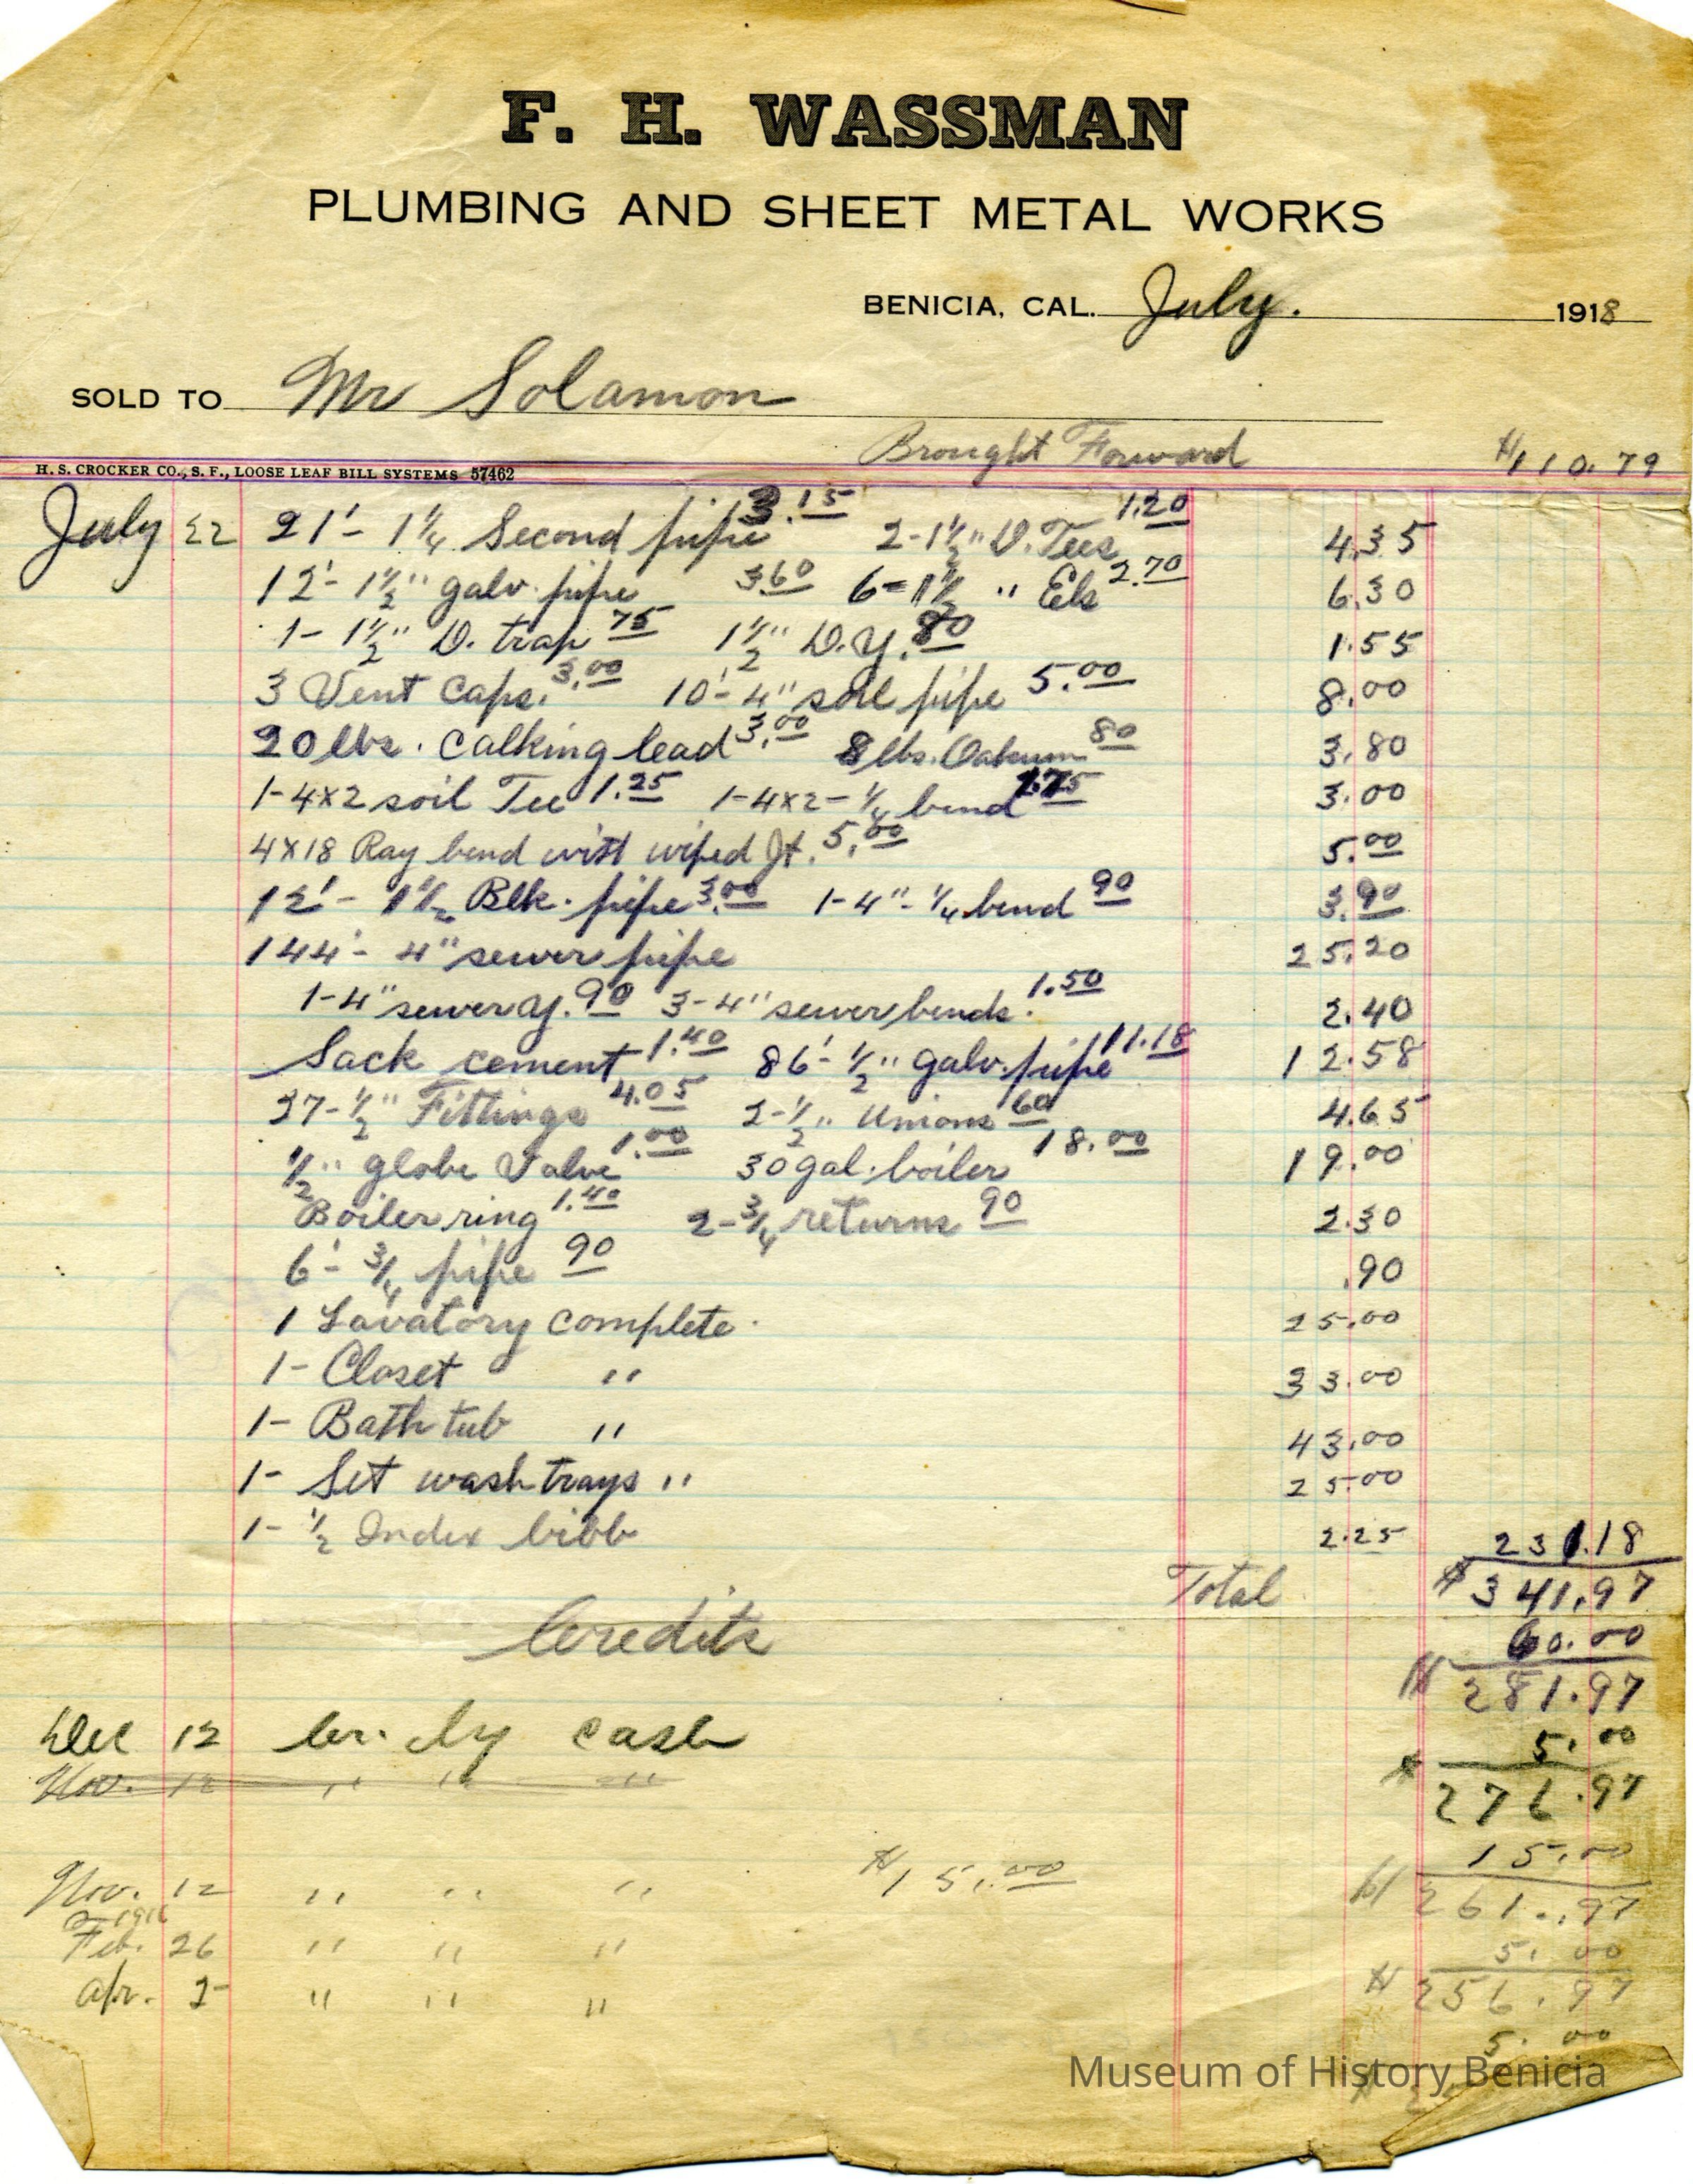 F. H. WASSMAN
PLUMBING AND SHEET METAL WORKS
BENICIA, CAL. July. 1918
SOLD TO Mr Solamon
Brought Forward $110.79
H. S. CROCKER CO., S. F., LOOSE LEAF BILL SYSTEMS 57462
July 22 21'- 1 1/4 Second pipe 3.15 2-1 1/2" D. Tees 1.20 4.35
12'- 1 1/2" galv. pipe 3.60 6-1 1/2 " Els 2.70 6.30
1- 1 1/2" D. trap 75 1 1/2" D.Y. 80 1.55
3 Vent Caps. 3.00 10'- 4" soil pipe 5.00 8.00
20 lbs. Calking lead 3.00 8 lbs. Oakum 80 3.80
1-4x2 soil Tee 1.25 1-4x2-1/4 bend 1.75 3.00
4x18 Ray bend with wiped Jt. 5.00 5.00
12'- 1 1/2 Blk. pipe 3.00 1-4"-1/4 bend 90 3.90
144'- 4" sewer pipe 25.20
1-4" sewer y. 90 3-4" sewer bends. 1.50 2.40
Sack cement 1.40 86'-1/2" galv. pipe 11.18 12.58
27-1/2" Fittings 4.05 2-1/2" Unions 60 4.65
1/2" globe Valve 1.00 30 gal. boiler 18.00 19.00
Boiler ring 1.40 2-3/4 returns 90 2.30
6'- 3/4 pipe 90 .90
1 Lavatory complete. 25.00
1- Closet " 33.00
1- Bath tub " 43.00
1- Set wash trays " 25.00
1- 1/2 Index bibb 2.25 231.18
Total $341.97
60.00
Credits $281.97
5.00
Dec 12 Cr. by cash
Nov. 12 " " " $276.97
15.00
Nov. 12 " " " $15.00 $261.97
Feb. 26 " " " 5.00
$256.97
Apr. 2 " " " 5.00
Museum of History Benicia